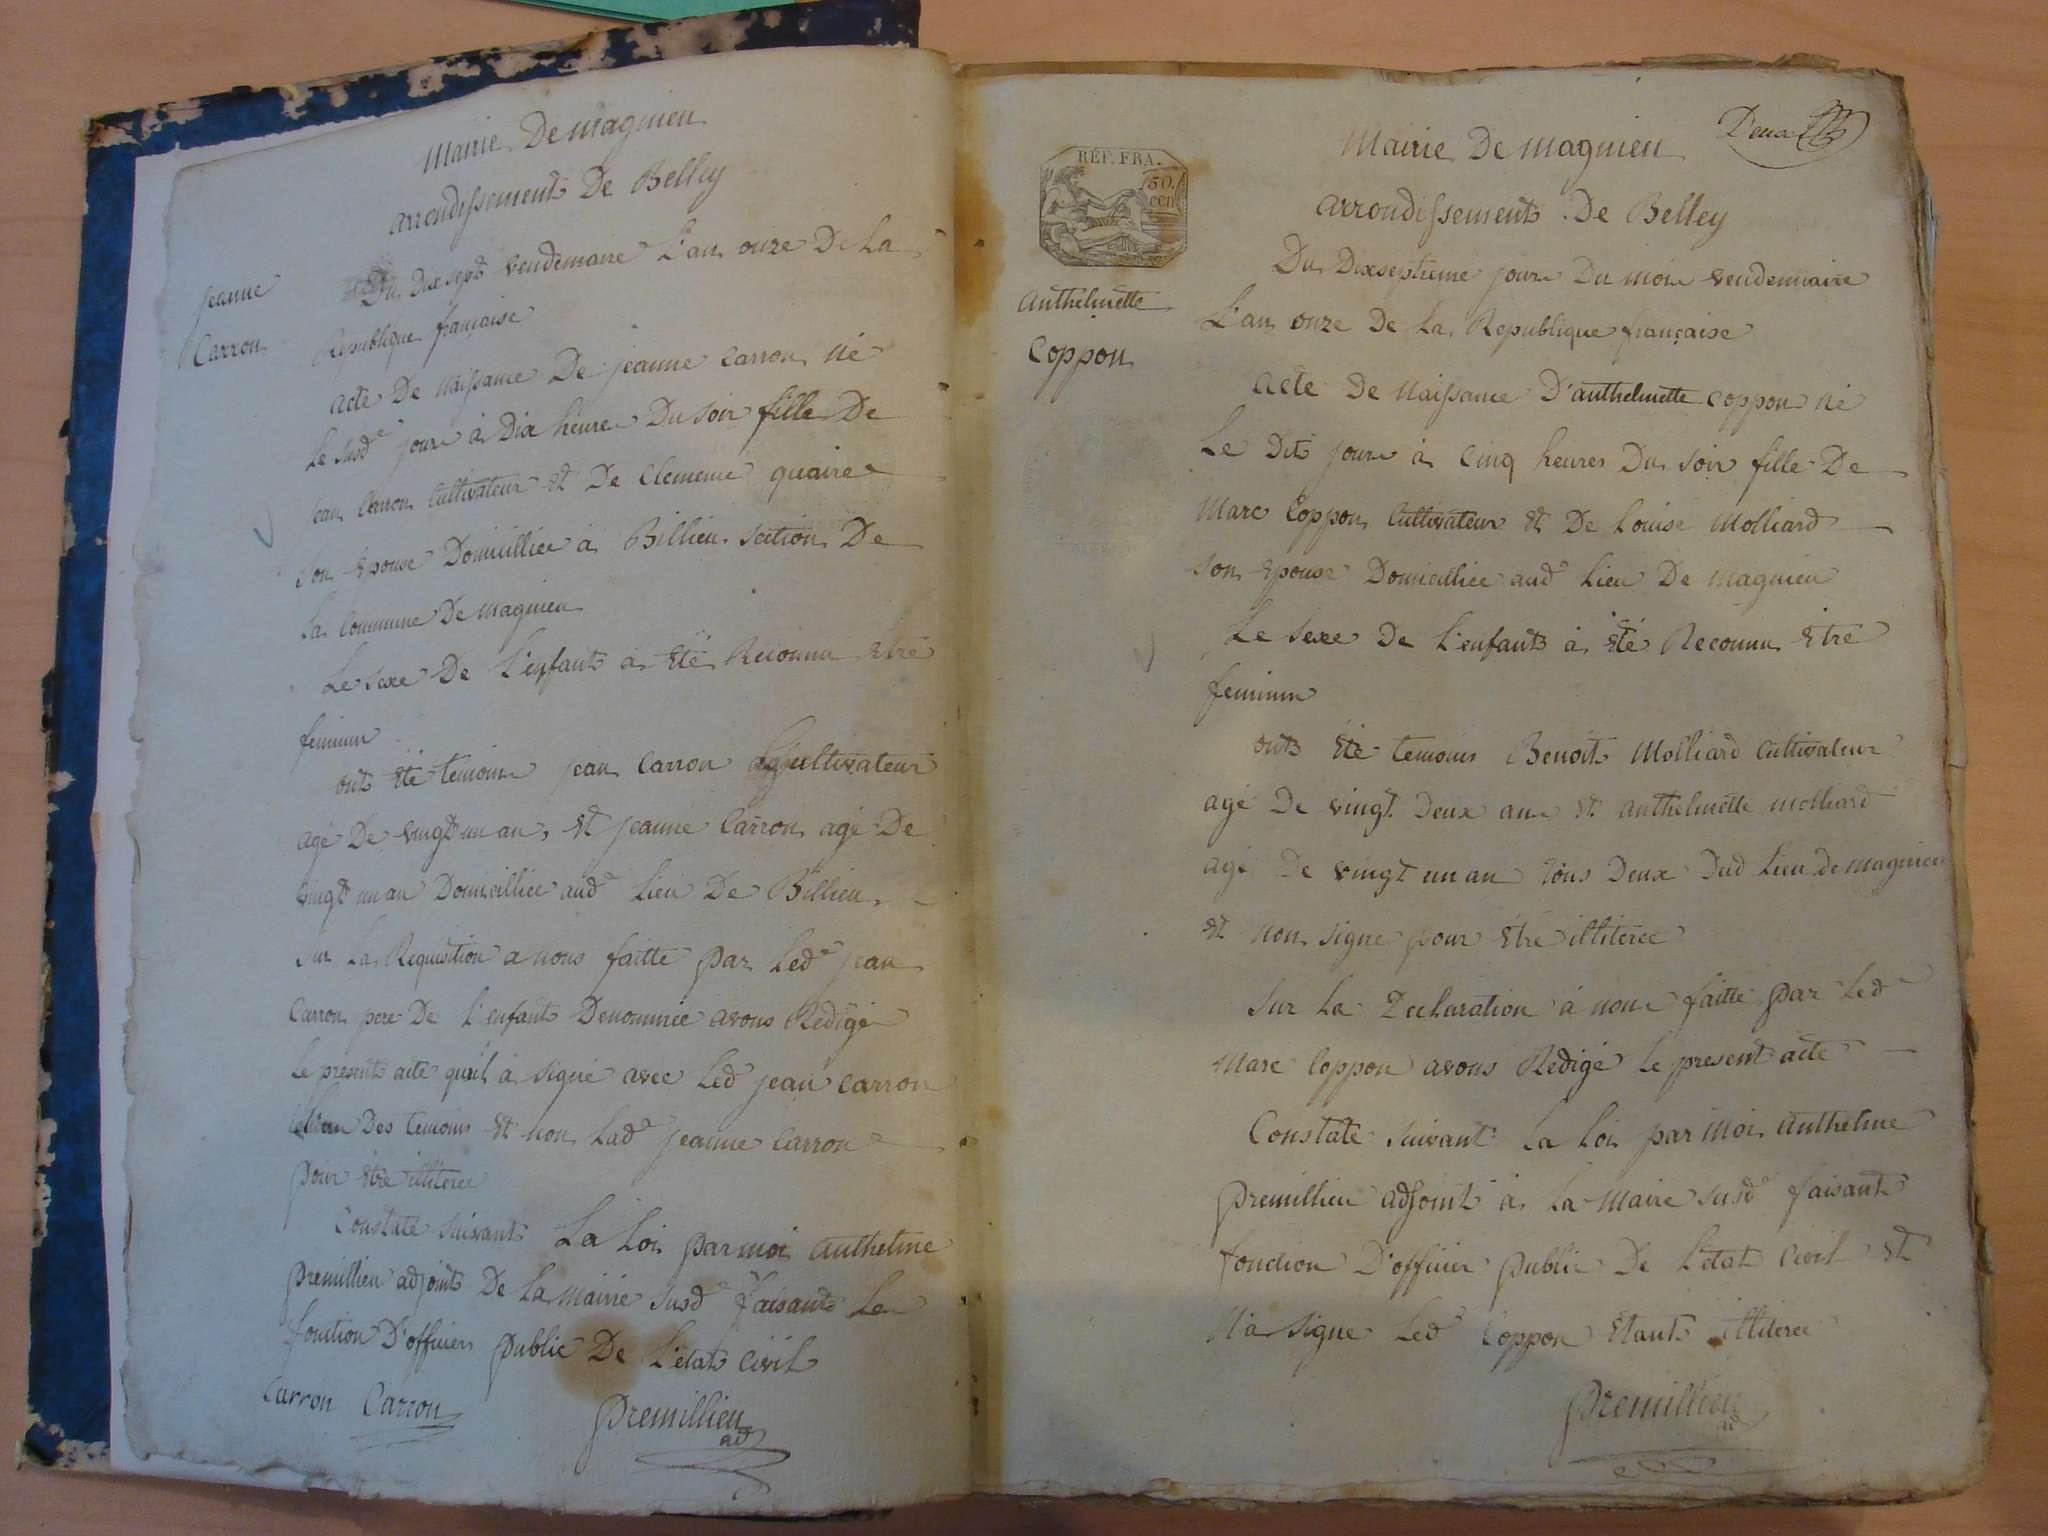 Mairie De magnieu
arrondissement De Belley
Du Dix sept vendemaire L'an onze De La
Republique française
jeanne
Carron
acte De naissance De jeanne carron né
Le susde jour à Dix heure Du soir fille De
jean Carron Cultivateur Et De Clemence quaire
son Epouse Domicilliée à Billieu section De
La Commune De magnieu
Le sexe De L'enfant à Eté Reconnu Etre
feminin
ont Eté temoin jean Carron Cultivateur
agé De vingt un an, Et jeanne Carron agé De
vingt un an Domicilliée aude Lieu De Billieu
sur La Requisition a nous faitte par Lede jean
Carron pere De L'enfant Denommée avons Redigé
Le present acte qu'il à signé avec Led jean carron
L'un Des temoins Et non Lade jeanne Carron
pour Etre illiterée
Constaté suivant La Loi par moi anthelme
Premillieu adjoint De La Mairie susde faisant Le
fonction D'officier public De L'etat Civil
Carron Carron Premillieu
ad
Deux
REP. FRA.
50.
cen
Mairie De magnieu
arrondissement De Belley
anthelmette
Coppon
Du Dixseptieme jour Du moi vendemiaire
L'an onze De La Republique française
acte De Naissance D'anthelmette coppon né
Le Dit jour à Cinq heures Du soir fille De
Marc Coppon Cultivateur Et De Louise Molliard
son Epouse Domicilliée aude Lieu De magnieu
Le sexe De L'enfant à Eté Reconnu Etre
feminin
ont Eté temoins Benoit Molliard Cultivateur
agé De vingt Deux an Et anthelmette molliard
agé De vingt un an tous Deux Dud Lieu de magnieu
Et non signé pour Etre illiterée
sur La Declaration à nou faitte par Lede
Marc Coppon avons Redigé Le present acte
Constaté suivant La Loi par Moi anthelme
Premillieu adjoint à La Maire susde faisant
fonction D'officier public De L'etat Civil Et
N'a signé Lede Coppon Etant illiteree
Premillieu
ad